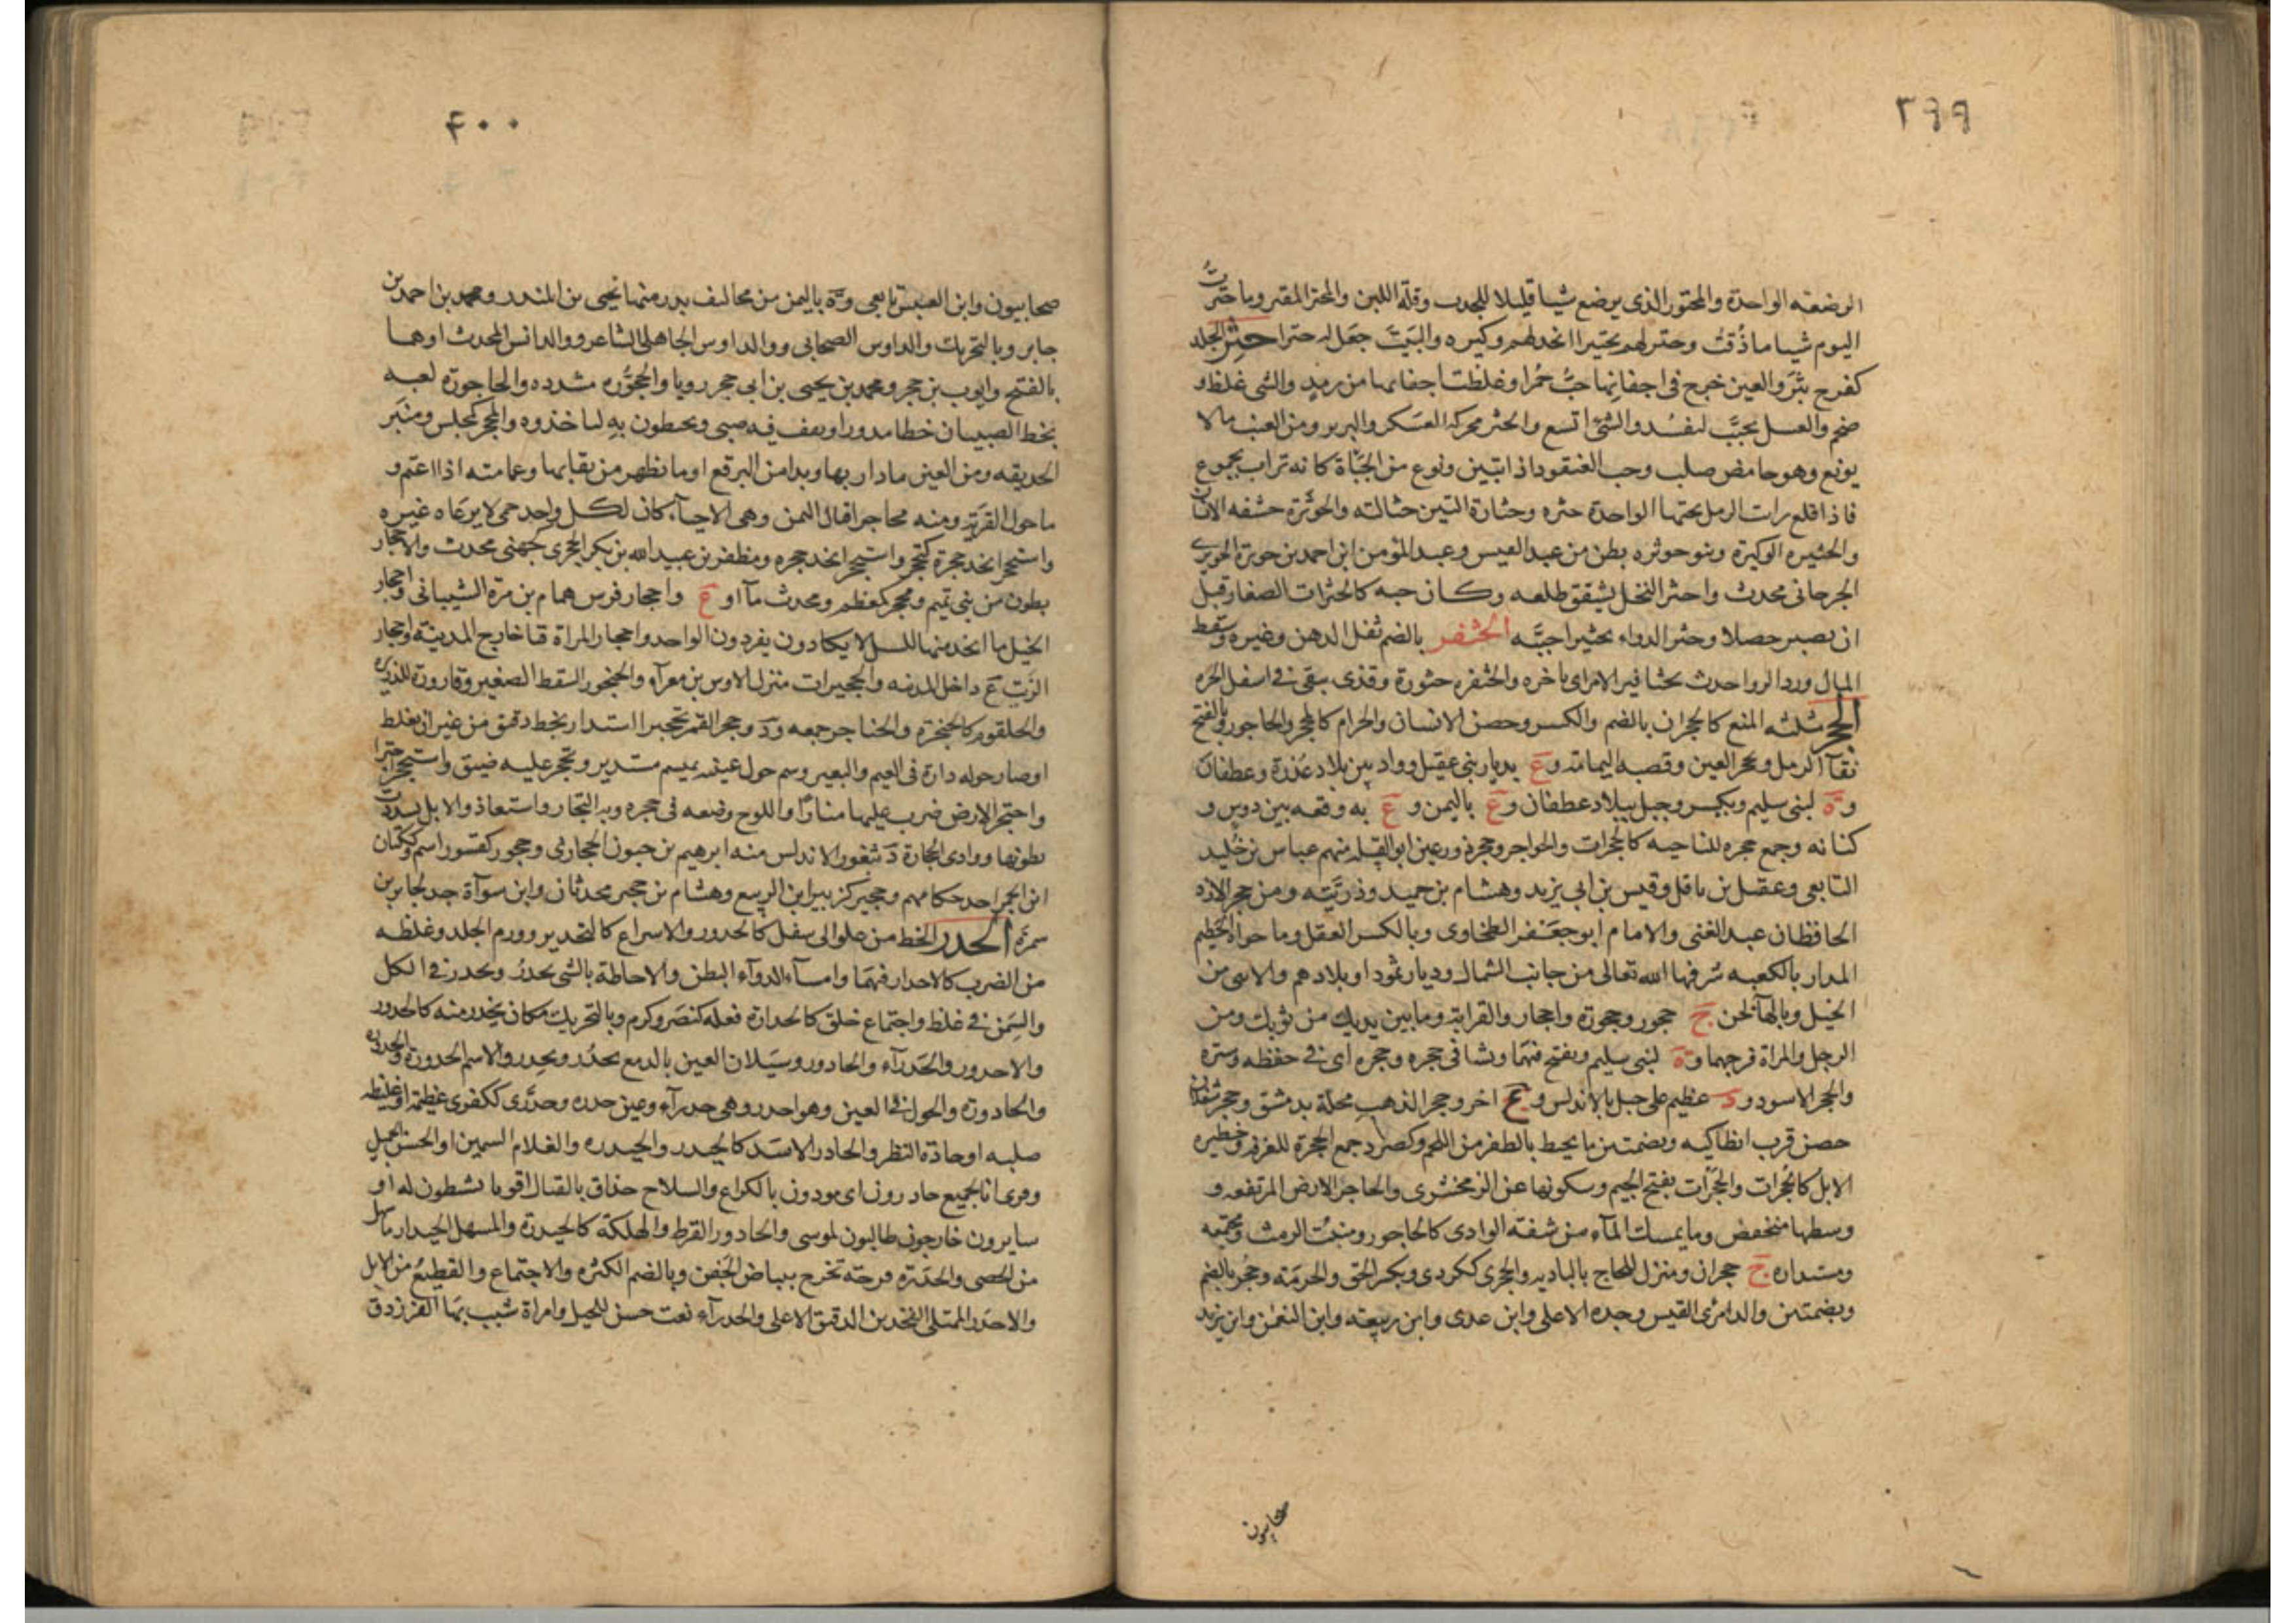 ٣٩٩
الرضعه الواحدة والمحتور الذى يرضع شيا قليلا للجدب وقلة اللبن والمحتر المقتر وما حترت
اليوم شيا ما ذقت وحتر لهم تحتيرا اتخذ لهم وكيره والبيت جعل له حترا حثر الجلد
كفرح بثر والعين خرج فى اجفانها حب حمر او غلظت اجفانها من رمد والشى غلظ و
ضخم والعسل تحبب ليفسد والشئ اتسع والحثر محركة العسكر والبرير ومن العنب مالا
يونع وهو حامض صلب وحب العنقود اذا تبين ونوع من الجبأة كانه تراب مجموع
فاذا قلع رات الرمل تحتها الواحدة حثره وحثارة التبن حثالته والحوثرة حشفه الانسان
والحثيره الوكيرة وبنو حوثره بطن من عبد القيس وعبد المومن ابن احمد بن حوثرة الحوثرى
الجرجانى محدث واحثر النخل تشقق طلعه وكان حبه كالحثرات الصغار قبل
ان يصير حصلا وحثر الدواء تحثيرا حببه الحثفر بالضم ثفل الدهن وغيره وسقط
المال ورد الرواحدث بحثافير الامر اى باخره والحثفره حثورة وقذى يبقى فى اسفل الجره
الحجر مثلثه المنع كالحجران بالضم والكسر وحصن الانسان والحرام كالمحجر والحاجور وبالفتح
نقآ الرمل ومحجر العين وقصبه اليمامة وع بديار بنى عقيل وواد بين بلاد عذرة وغطفان
وة لبنى سليم ويكسر وجبل ببلاد غطفان وع باليمن وع به وقعه بين دوس و
كنانه وجمع حجره للناحيه كالحجرات والحواجر وحجر ذورعين ابو القبله منهم عباس بن خليد
التابعى وعقيل بن باقل وقيس بن ابى يزيد وهشام بن حميد وذريته ومن حجر الازد
الحافظان عبد الغنى والامام ابو جعفر الطحاوى وبالكسر العقل وما حواه الحطيم
المدار بالكعبه شرفها الله تعالى من جانب الشمال وديار ثمود او بلادهم والانثى من
الخيل وبالهآ لحن ج حجور وحجورة واحجار والقرابة وما بين يديك من ثوبك ومن
الرجل والمراة فرجهما وة لبنى سليم ويفتح فيهما ونشا فى حجره وحجره اى فى حفظه وستره
والحجر الاسود ود عظيم على جبل بالاندلس وع اخر وحجر الذهب محلة بدمشق وحجر شغلان
حصن قرب انطاكيه وبضمتين ما يحيط بالظفر من اللحم وكصرد جمع الحجرة للغرفه وحظيره
الابل كالحجرات والحجرات بفتح الجيم وسكونها عن الزمخشرى والحاجر الارض المرتفعه و
وسطها منخفض وما يمسك المآء من شفة الوادى كالحاجور ومنبت الرمث ومجتمعه
ومستداره ج حجران ومنزل للحاج بالباديه والحجرى ككردى ويكسر الحق والحرمة وحجر بالضم
وبضمتين والد امرئ القيس وجده الاعلى وابن عدى وابن ربيعه وابن النعمن وابن يزيد
صحابيون
٤٠٠
صحابيون وابن العنبس تابعى وة باليمن من مخاليف بدر منها يحيى بن المنذر ومحمد بن احمد بن
جابر وبالتحريك والد اوس الصحابى ووالد اوس الجاهلى الشاعر ووالد انس المحدث او هما
بالفتح وايوب بن حجر ومحمد بن يحيى بن ابى حجر رويا والحجوره مشدده والحاجورة لعبه
يخط الصبيان خطا مدورا ويقف فيه صبى ويحيطون به لياخذوه والمحجر كمجلس ومنبر
الحديقه ومن العين ما دار بها وبدا من البرقع او ما يظهر من نقابها وعمامته اذا اعتم و
ما حول القرية ومنه محاجر اقيال اليمن وهى الاحمآء كان لكل واحد حمى لا يرعاه غيره
واستحجر اتخذ حجرة كتحجر واستحجر اتخذ حجره ومظفر بن عبد الله بن بكر الحجرى كجهنى محدث والاحجار
بطون من بنى تميم ومحجر كمعظم ومحدث مآ او ع واحجار فرس همام بن مرة الشيبانى واحجار
الخيل ما اتخذ منها للنسل لا يكادون يفردون الواحد واحجار المراة قبا خارج المدينة واحجار
الزيت ع داخل المدينه والحجيرات منزل لاوس بن مغرآء والحنجور السفط الصغير وقارورة للذريره
والحلقوم كالحنجرة والحناجر جمعه ود وحجر القمر تحجيرا استدار بخط دقيق من غير ان يغلظ
او صار حوله دارة فى الغيم والبعير وسم حول عينيه بميسم مستدير وتحجر عليه ضيق واستحجر اجترا
واحتجر الارض ضرب عليها منارا واللوح وضعه فى حجره وبه التجا واستعاذ والابل تشددت
بطونها ووادى الحجارة د بثغور الاندلس منه ابرهيم بن حيون الحجارى وحجور كقسور اسم وككتان
ابن ابجر احد حكامهم وحجير كزبير ابن الربيع وهشام بن حجير محدثان وابن سوآة جد لجابر بن
سمرة الحدر الحط من علو الى سفل كالحدور والاسراع كالتحدير وورم الجلد وغلظه
من الضرب كالاحدار فيهما وامشآء الدوآء البطن والاحاطة بالشى يحدر ويحدر فى الكل
والسمن فى غلظ واجتماع خلق كالحدارة فعله كنصر وكرم وبالتحريك مكان ينحدر منه كالحدور
والاحدور والحدرآء والحادور وسيلان العين بالدمع تحدر وتحدر والاسم الحدورة والحدوره
والحادورة والحول فى العين وهو احدر وهى حدرآء وعين حدره وحدرى ككفرى عظيمة او غليظه
صلبه او حادة النظر والحادر الاسد كالحيدر والحيدره والغلام السمين او الحسن الجميل
وقرى انا لجميع حادرون اى مودون بالكراع والسلاح حذاق بالقتال اقويا نشطون له او
سايرون خارجون طالبون لموسى والحادور القرط والهلكة كالحيدرة والمسهل الحيدار ما صلب
من الحصى والحدرة قرحة تخرج ببياض الجفن وبالضم الكثره والاجتماع والقطيع من الابل
والاحدر الممتلى الفخذين الدقيق الاعلى والحدرآء نعت حسن للخيل وامراة شبب بها الفرزدق